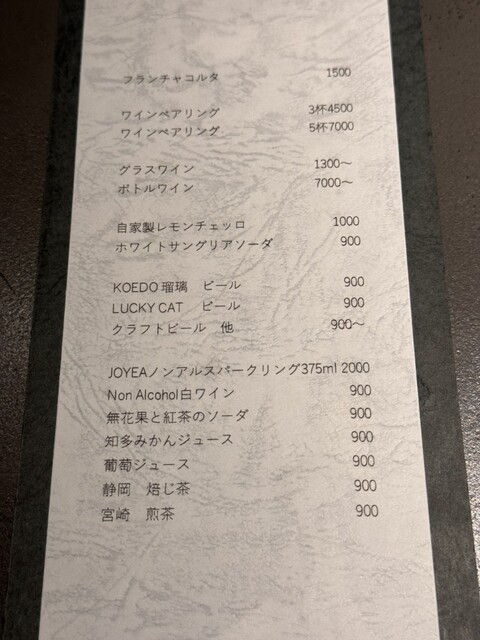 フランチャコルタ 1500
ワインペアリング 3杯4500
ワインペアリング 5杯7000
グラスワイン 1300〜
ボトルワイン 7000〜
自家製レモンチェッロ 1000
ホワイトサングリアソーダ 900
KOEDO 瑠璃 ビール 900
LUCKY CAT ビール 900
クラフトビール 他 900〜
JOYEAノンアルスパークリング375ml 2000
Non Alcohol白ワイン 900
無花果と紅茶のソーダ 900
知多みかんジュース 900
葡萄ジュース 900
静岡 焙じ茶 900
宮崎 煎茶 900